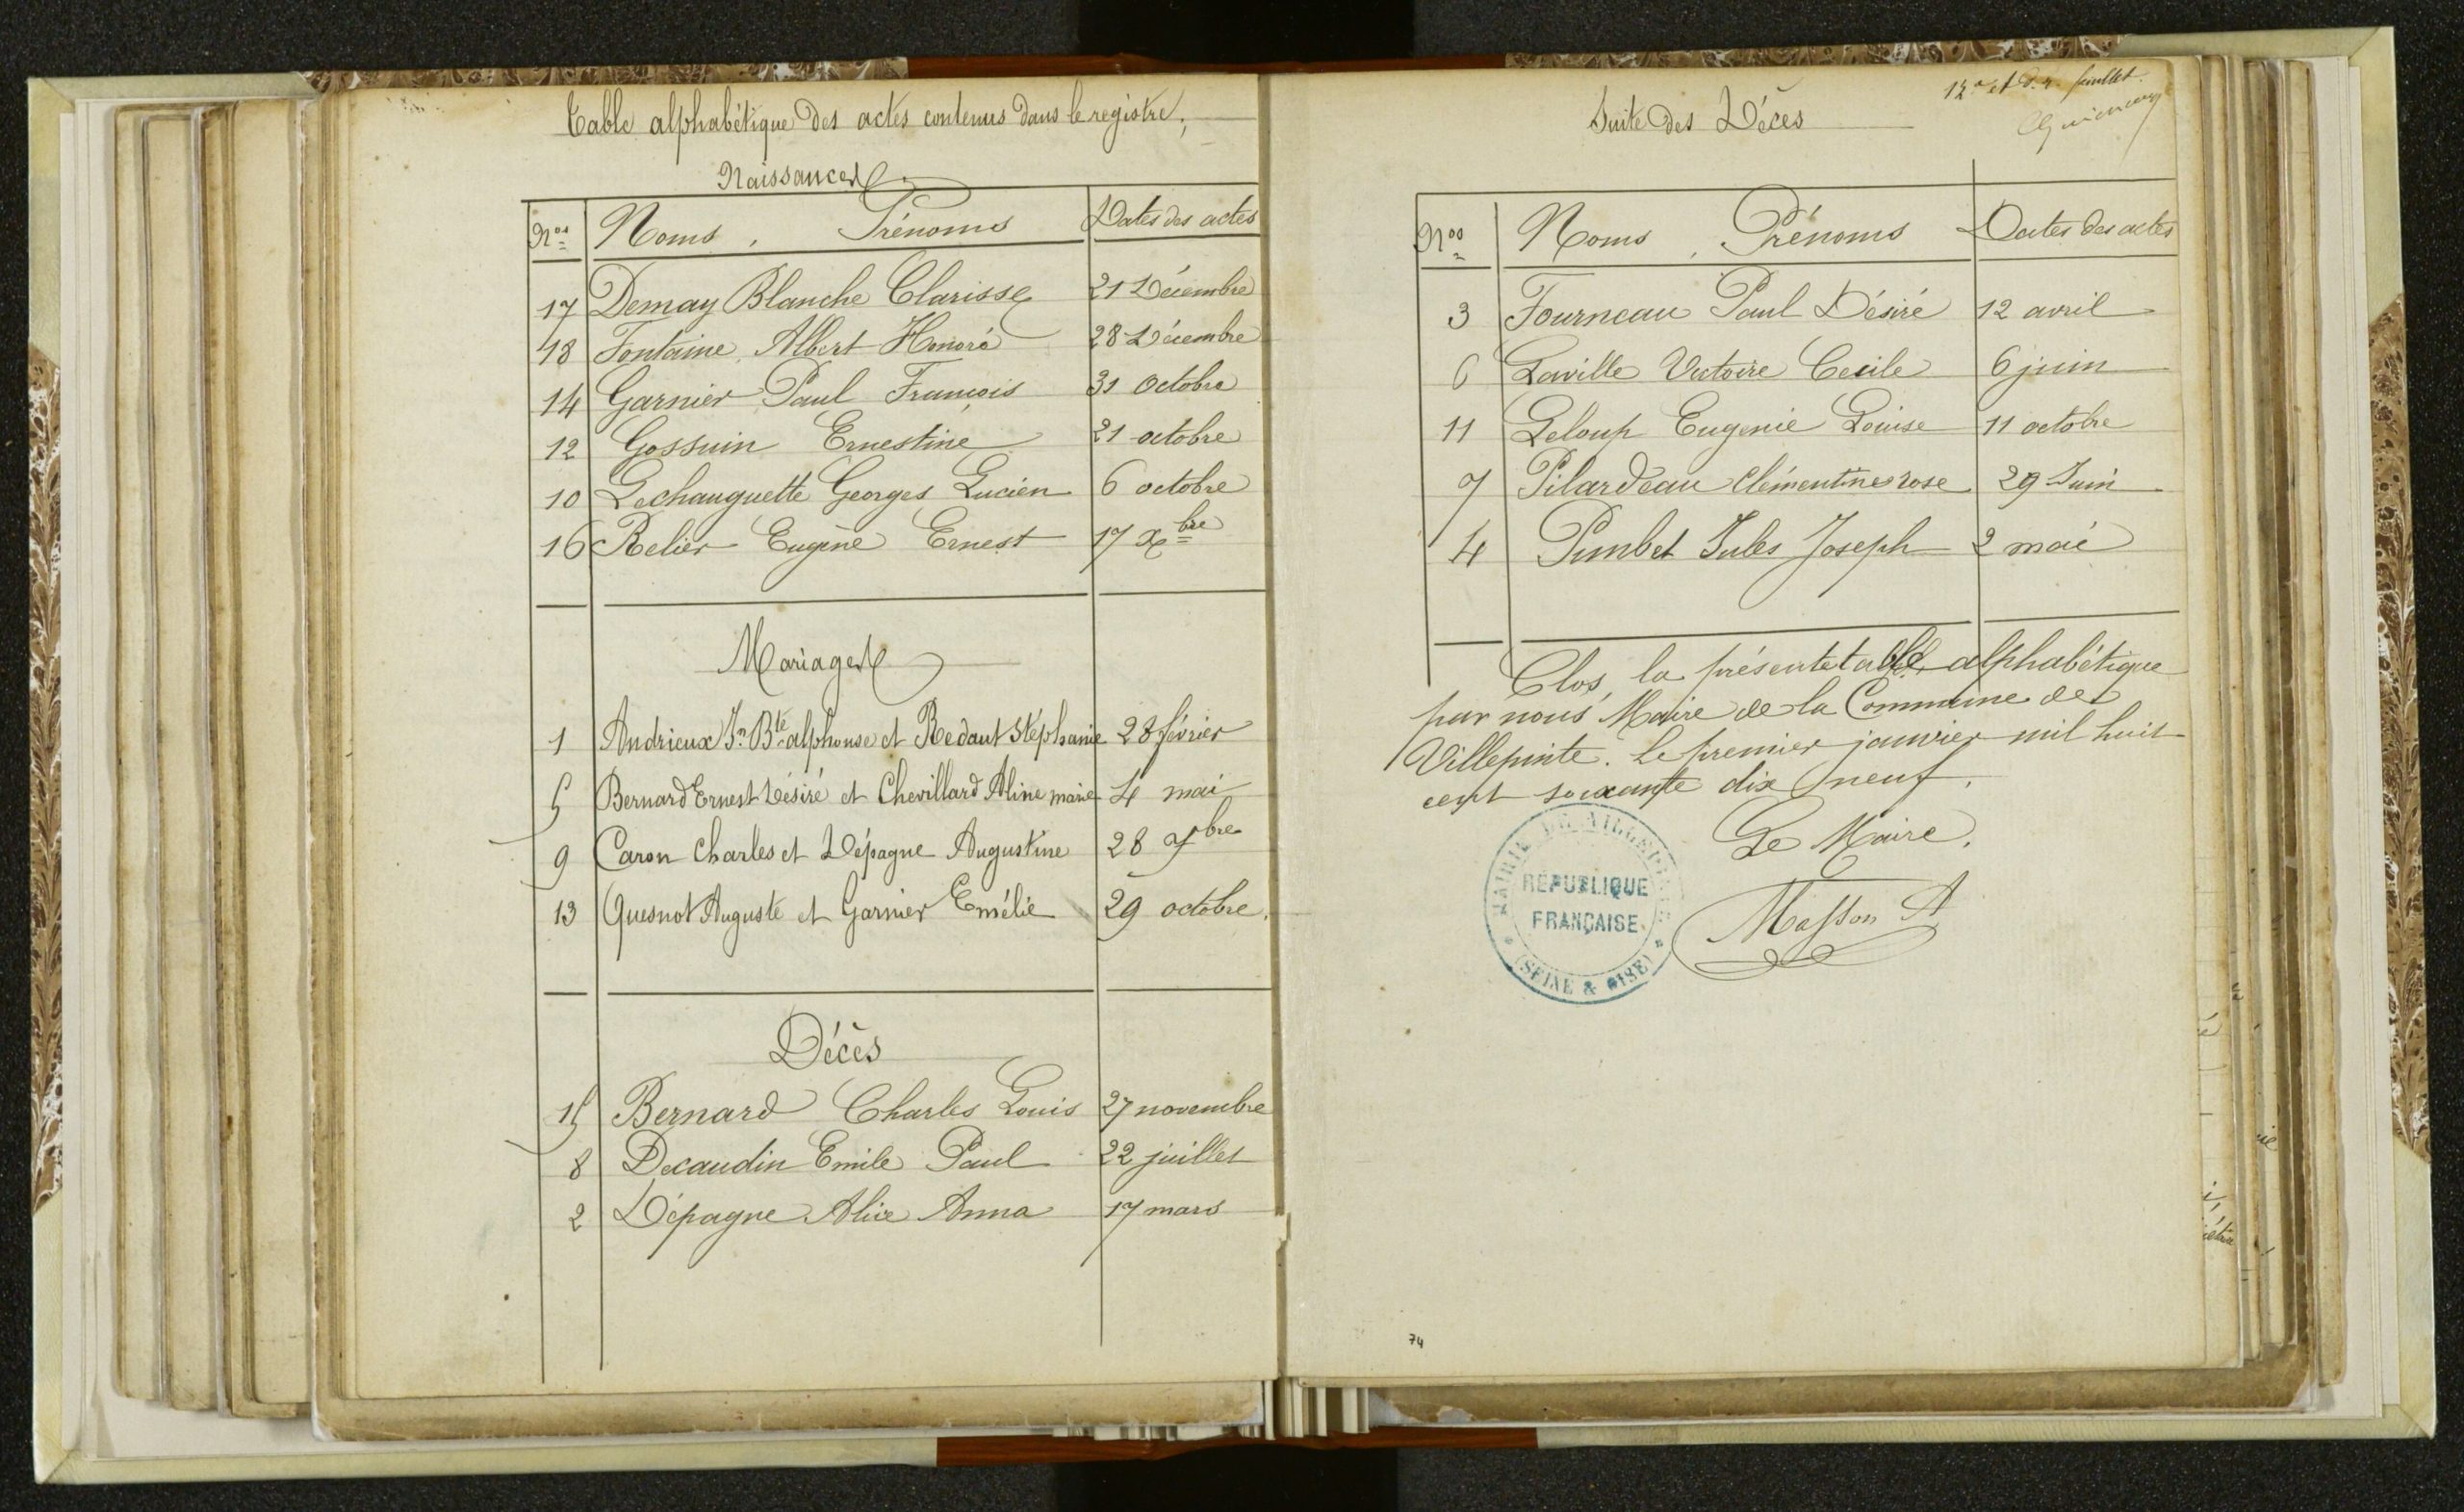 Table alphabétique des actes contenus dans le registre.
Naissances
Nos Noms, Prénoms Dates des actes
17 Demay Blanche Clarisse 21 Décembre
18 Fontaine, Albert Honoré 28 Décembre
14 Garnier Paul François 31 Octobre
12 Gossuin Ernestine 21 octobre
10 Lechauguette Georges Lucien 6 octobre
16 Relier Eugène Ernest 17 Xbre
Mariages
1 Andrieux Jn Bte alphonse et Redaut Stéphanie 28 février
5 Bernard Ernest Désiré et Chevillard Aline marie 4 mai
9 Caron Charles et Dépagne Augustine 28 7bre
13 Quesnot Auguste et Garnier Emélie 29 octobre.
Décès
15 Bernard Charles Louis 27 novembre
8 Decaudin Emile Paul 22 juillet
2 Dépagne Alice Anna 17 mars
feuillet.
Suite des Décès
Nos Noms, Prénoms Dates des actes
3 Fourneau Paul Désiré 12 avril
6 Laville Victoire Cecile 6 juin
11 Leloup Eugenie Louise 11 octobre
7 Pilardeau Clémentine rose 29 Juin
4 Pimbet Jules Joseph 2 mai
Clos, la présente table alphabétique
par nous Maire de la Commune de
Villepinte. Le premier janvier mil huit
cent soixante dix neuf.
Le Maire,
Masson A
MAIRIE DE VILLEPINTE
RÉPUBLIQUE
FRANÇAISE
(SEINE & OISE)
74